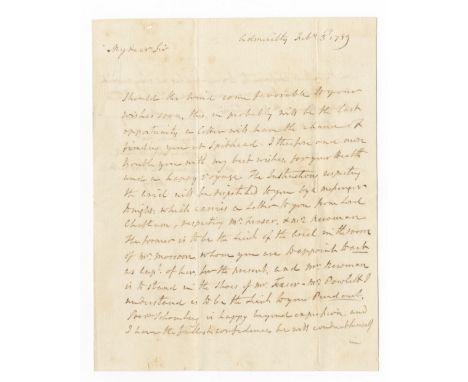 Admiralty Feb. 3d 1789
My dear Sir
Should the wind come favorable to your
wishes soon, this, in probably will be the last
opportunity a Letter will have the chance of
finding you at Spithead. I therefore once more
trouble you with my best wishes for your Health
and a happy voyage. The Instructions respecting
the will be to you by a messenger
tonight, which carries a Letter to you from Lord
Chatham, respecting Mr. & Mr. Newman
The former is to be the Lieut of the in the room
of Mr. whom you are to appoint to act
as of her for the present, and Mr. Newman
is to stand in the shoes of Mr. Mr. Powlett I
understand is to be the Lieut to your
Schomberg is happy beyond expression, and
I have the fullest confidence he will conduct himself